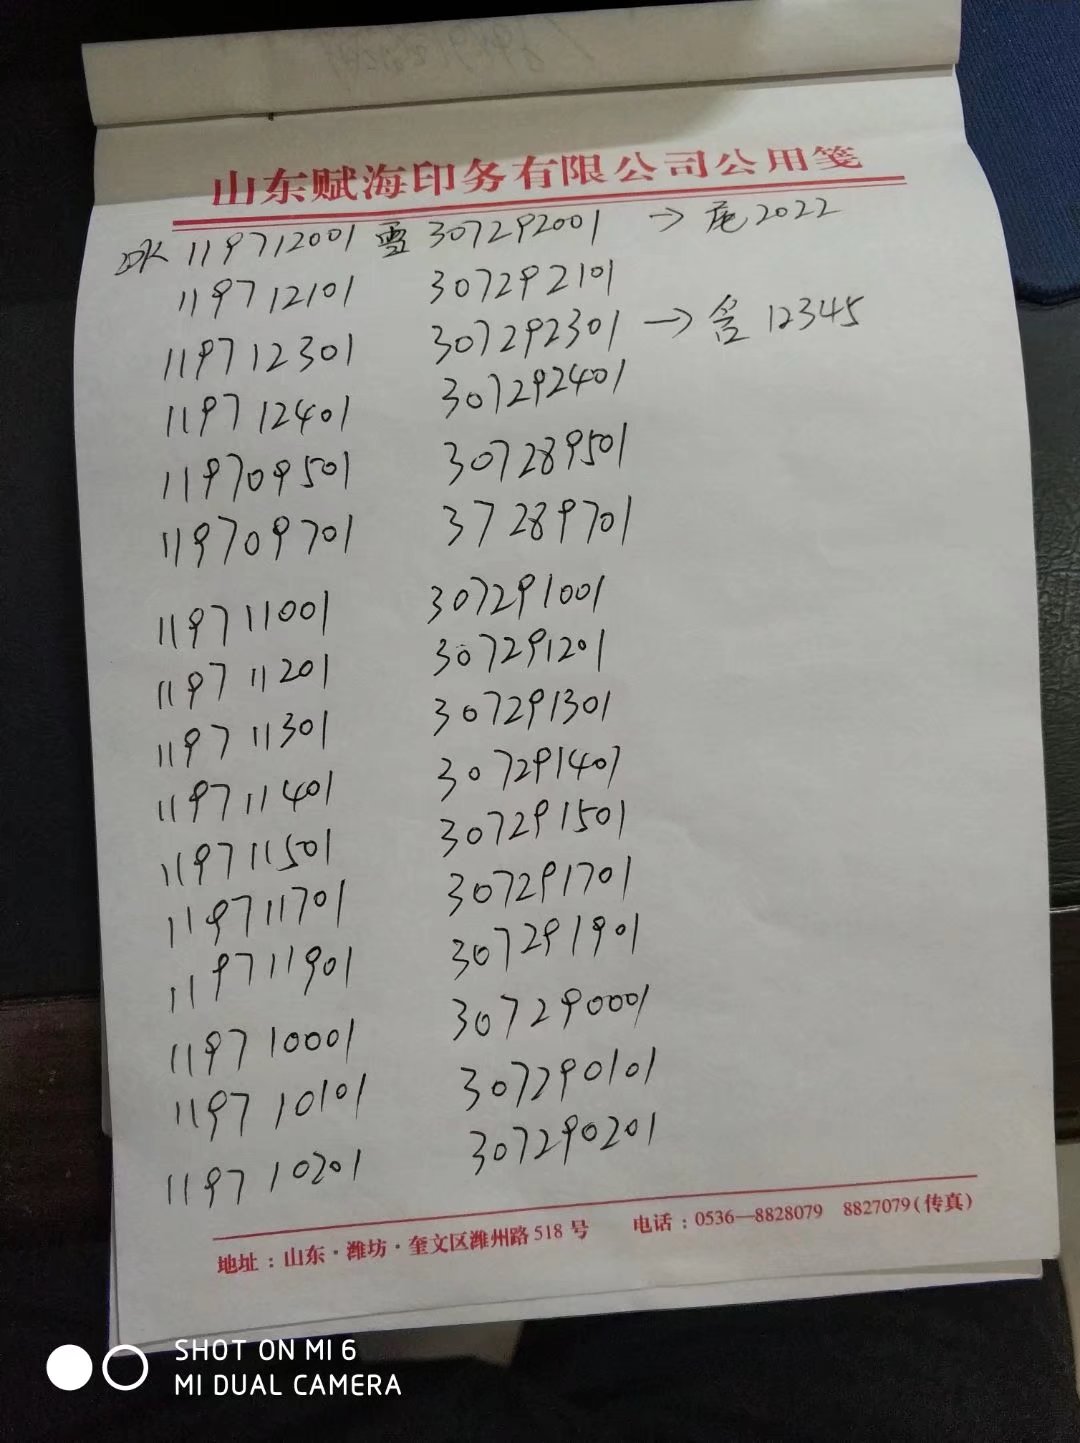 山东赋海印务有限公司公用笺
冰 119712001 雪 307292001 → 尾2022
119712101 307292101
119712301 307292301 → 含 12345
119712401 307292401
119709501 307289501
119709701 37289701
119711001 307291001
119711201 307291201
119711301 307291301
119711401 307291401
119711501 307291501
119711701 307291701
119711901 307291901
119710001 307290001
119710101 307290101
119710201 307290201
地址：山东·潍坊·奎文区潍州路518号 电话：0536—8828079 8827079(传真)
SHOT ON MI 6
MI DUAL CAMERA